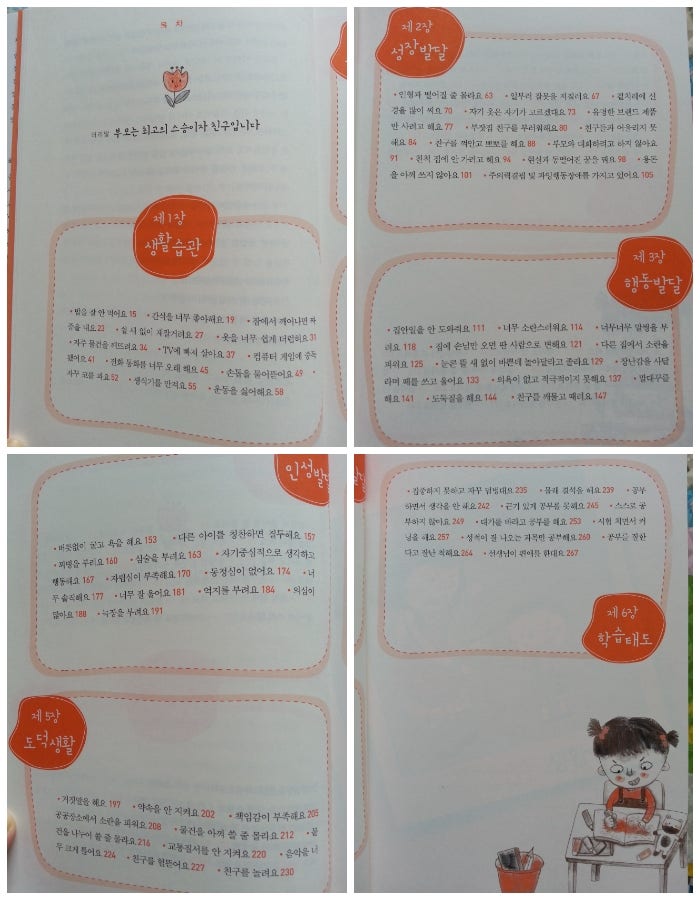 목 차
머리말 부모는 최고의 스승이자 친구입니다
제1장
생활 습관
• 밥을 잘 안 먹어요 15 • 간식을 너무 좋아해요 19 • 잠에서 깨어나면 짜
증을 내요 23 • 쉴 새 없이 재잘거려요 27 • 옷을 너무 쉽게 더럽혀요 31
• 자주 물건을 깨뜨려요 34 • TV에 빠져 살아요 37 • 컴퓨터 게임에 중독
됐어요 41 • 전화 통화를 너무 오래 해요 45 • 손톱을 물어뜯어요 49 •
자꾸 코를 파요 52 • 생식기를 만져요 55 • 운동을 싫어해요 58
제2장
성장발달
• 인형과 떨어질 줄 몰라요 63 • 일부러 잘못을 저질러요 67 • 겉치레에 신
경을 많이 써요 70 • 자기 옷은 자기가 고르겠대요 73 • 유명한 브랜드 제품
만 사려고 해요 77 • 부잣집 친구를 부러워해요 80 • 친구들과 어울리지 못
해요 84 • 친구를 껴안고 뽀뽀를 해요 88 • 부모와 대화하려고 하지 않아요
91 • 친척 집에 안 가려고 해요 94 • 현실과 동떨어진 꿈을 꿔요 98 • 용돈
을 아껴 쓰지 않아요 101 • 주의력결핍 및 과잉행동장애를 가지고 있어요 105
제3장
행동발달
• 집안일을 안 도와줘요 111 • 너무 소란스러워요 114 • 너무너무 말썽을 부
려요 118 • 집에 손님만 오면 딴 사람으로 변해요 121 • 다른 집에서 소란을
피워요 125 • 눈코 뜰 새 없이 바쁜데 놀아달라고 졸라요 129 • 장난감을 사달
라며 떼를 쓰고 울어요 133 • 의욕이 없고 적극적이지 못해요 137 • 말대꾸를
해요 141 • 도둑질을 해요 144 • 친구를 깨물고 때려요 147
인성발달
• 버릇없이 굴고 욕을 해요 153 • 다른 아이를 칭찬하면 질투해요 157
• 꾀병을 부려요 160 • 심술을 부려요 163 • 자기중심적으로 생각하고
행동해요 167 • 자립심이 부족해요 170 • 동정심이 없어요 174 • 너
무 솔직해요 177 • 너무 잘 울어요 181 • 억지를 부려요 184 • 의심이
많아요 188 • 늑장을 부려요 191
제5장
도덕생활
• 거짓말을 해요 197 • 약속을 안 지켜요 202 • 책임감이 부족해요 205
공공장소에서 소란을 피워요 208 • 물건을 아껴 쓸 줄 몰라요 212 • 물
건을 나누어 쓸 줄 몰라요 216 • 교통질서를 안 지켜요 220 • 음악을 너
무 크게 틀어요 224 • 친구를 헐뜯어요 227 • 친구를 놀려요 230
• 집중하지 못하고 자꾸 덤벙대요 235 • 몰래 결석을 해요 239 • 공부
하면서 생각을 안 해요 242 • 끈기 있게 공부를 못해요 245 • 스스로 공
부하지 않아요 249 • 대가를 바라고 공부를 해요 253 • 시험 치면서 커
닝을 해요 257 • 성적이 잘 나오는 과목만 공부해요 260 • 공부를 잘한
다고 잘난 척해요 264 • 선생님이 편애를 한대요 267
제6장
학습태도